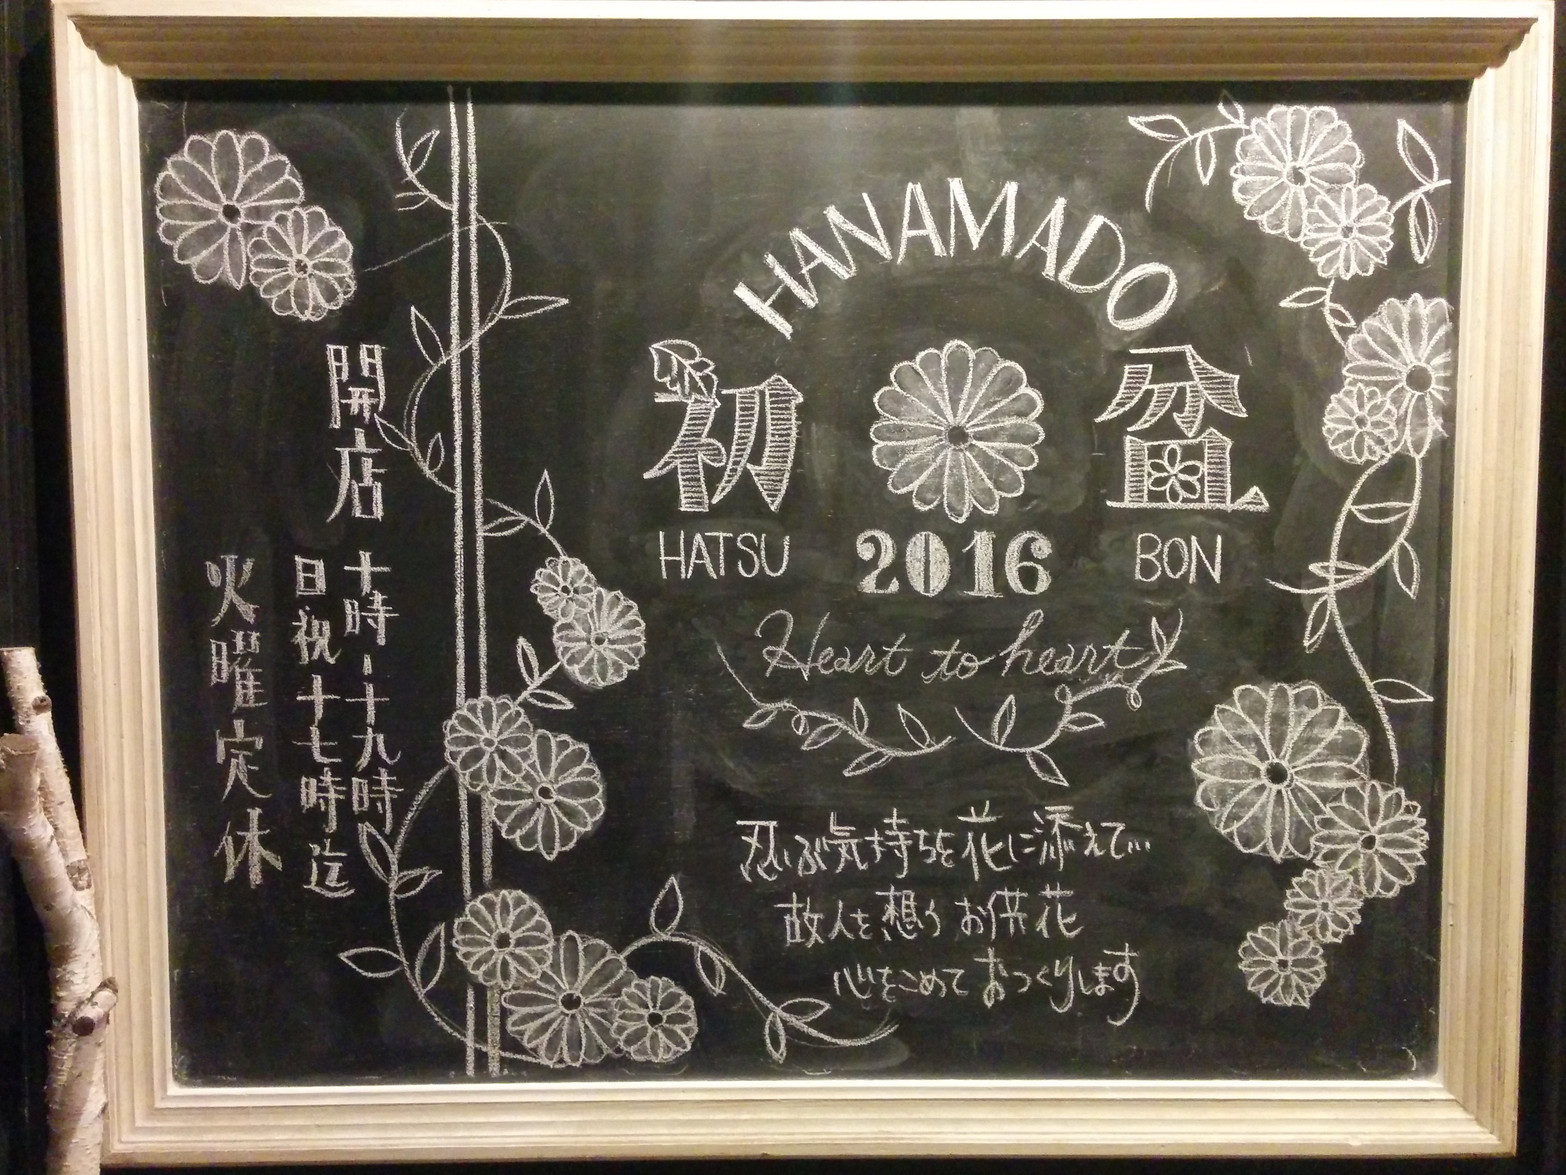 HANAMADO
初 盆
HATSU 2016 BON
Heart to heart
忍ぶ気持ちを花に添えて…
故人を想うお供花
心をこめておつくりします
開店
十時-十九時
日祝十七時迄
火曜定休